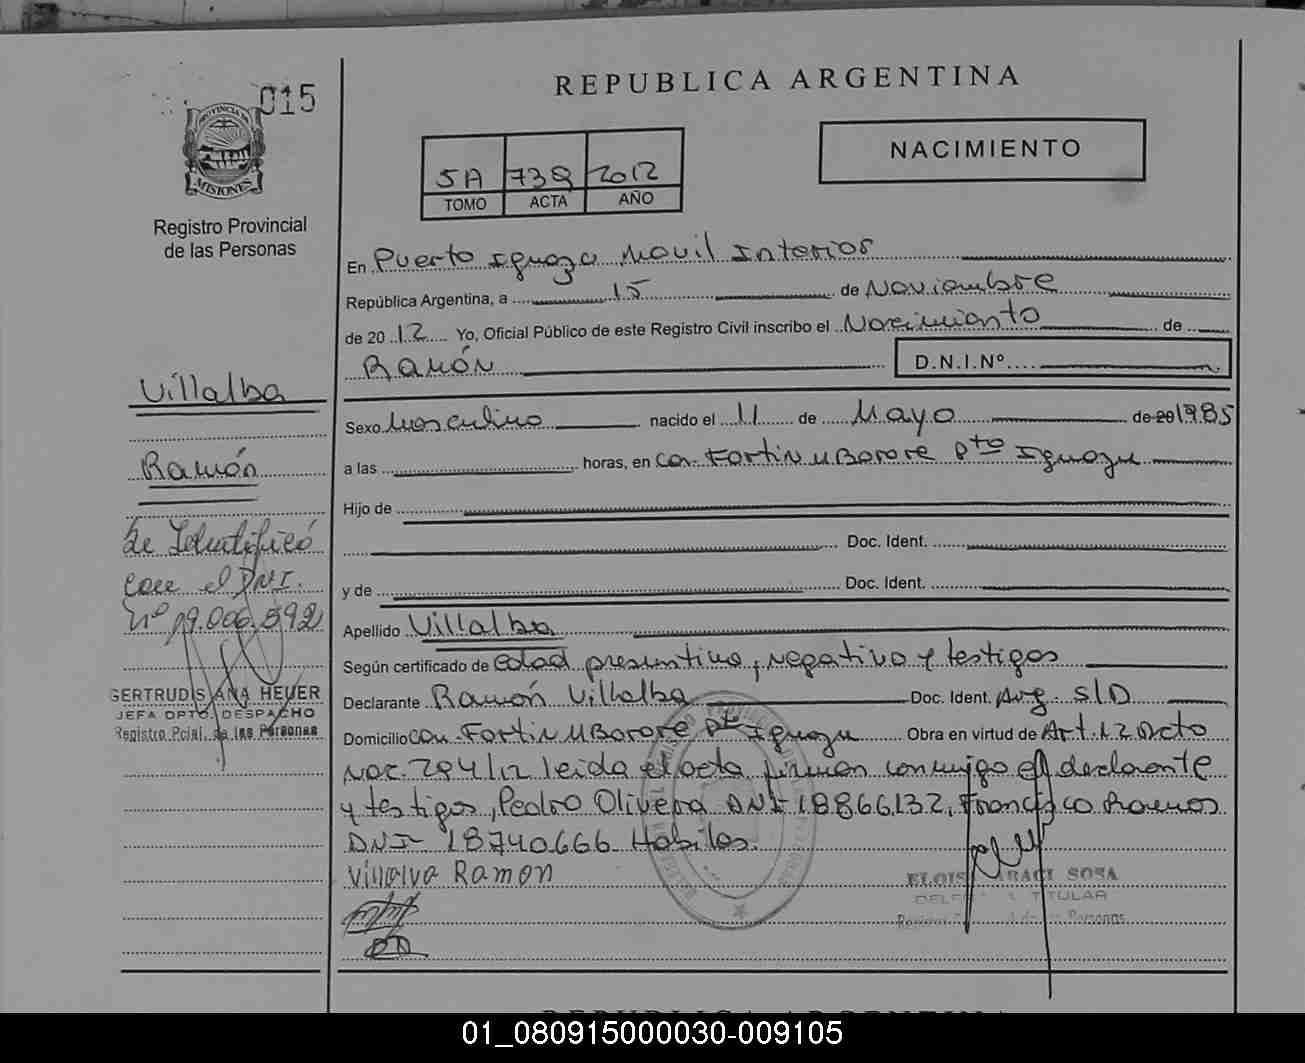 015
PROVINCIA DE
MISIONES
Registro Provincial
de las Personas
REPUBLICA ARGENTINA
NACIMIENTO
5A 738 2012
TOMO ACTA AÑO
En Puerto Iguazu Movil Interior
República Argentina, a 15 de Noviembre
de 20 12 Yo, Oficial Público de este Registro Civil inscribo el Nacimiento de
Ramón D.N.I.Nº
Villalba
Ramón
Se Identificó
con el DNI.
Nº 19.000.592
GERTRUDIS ANA HEUER
JEFA DPTO. DESPACHO
Registro Pcial. de las Personas
Sexo Masculino nacido el 11 de Mayo de 20 1985
a las horas, en Com. Fortin MBorore Pto Iguazu
Hijo de
Doc. Ident.
y de Doc. Ident.
Apellido Villalba
Según certificado de edad presuntiva, negativo y testigos
Declarante Ramón Villalba Doc. Ident. Arg. S/D
Domicilio Com. Fortin MBorore Pto Iguazu Obra en virtud de Art. 12 Dcto
Nac. 294/12 leida el acta firman conmigo el declarante
y testigos, Pedro Olivera DNI 18866132, Francisco Ramos
DNI 18740666 Habiles.
Villalva Ramon
ELOIS ARACI SOSA
TITULAR
Personas
REPUBLICA ARGENTINA
01_080915000030-009105